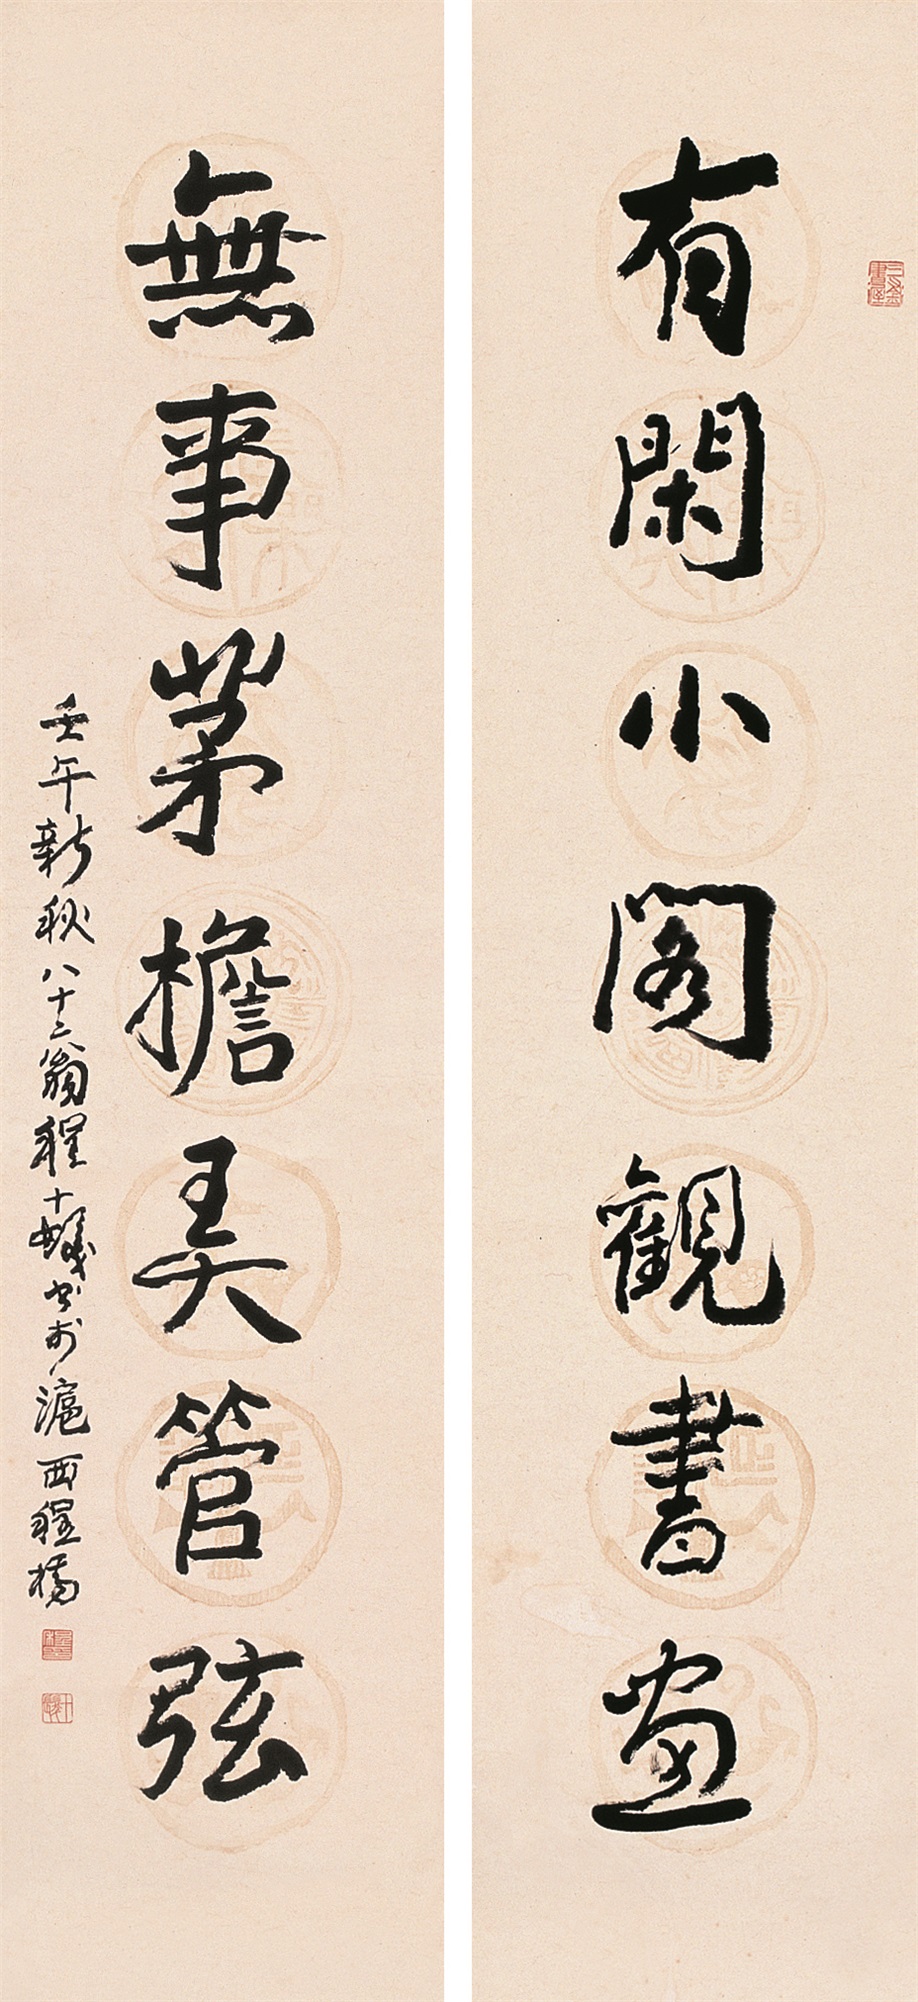 三釜書屋
有閑小閣觀書畫
無事茅檐美管弦
壬午新秋八十二翁程十髮書於滬西程橋